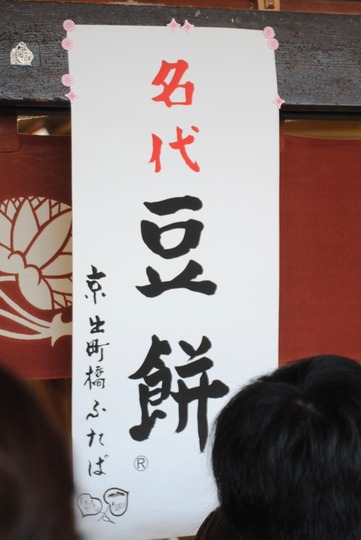 名代
豆餅®
京出町橋ふたば